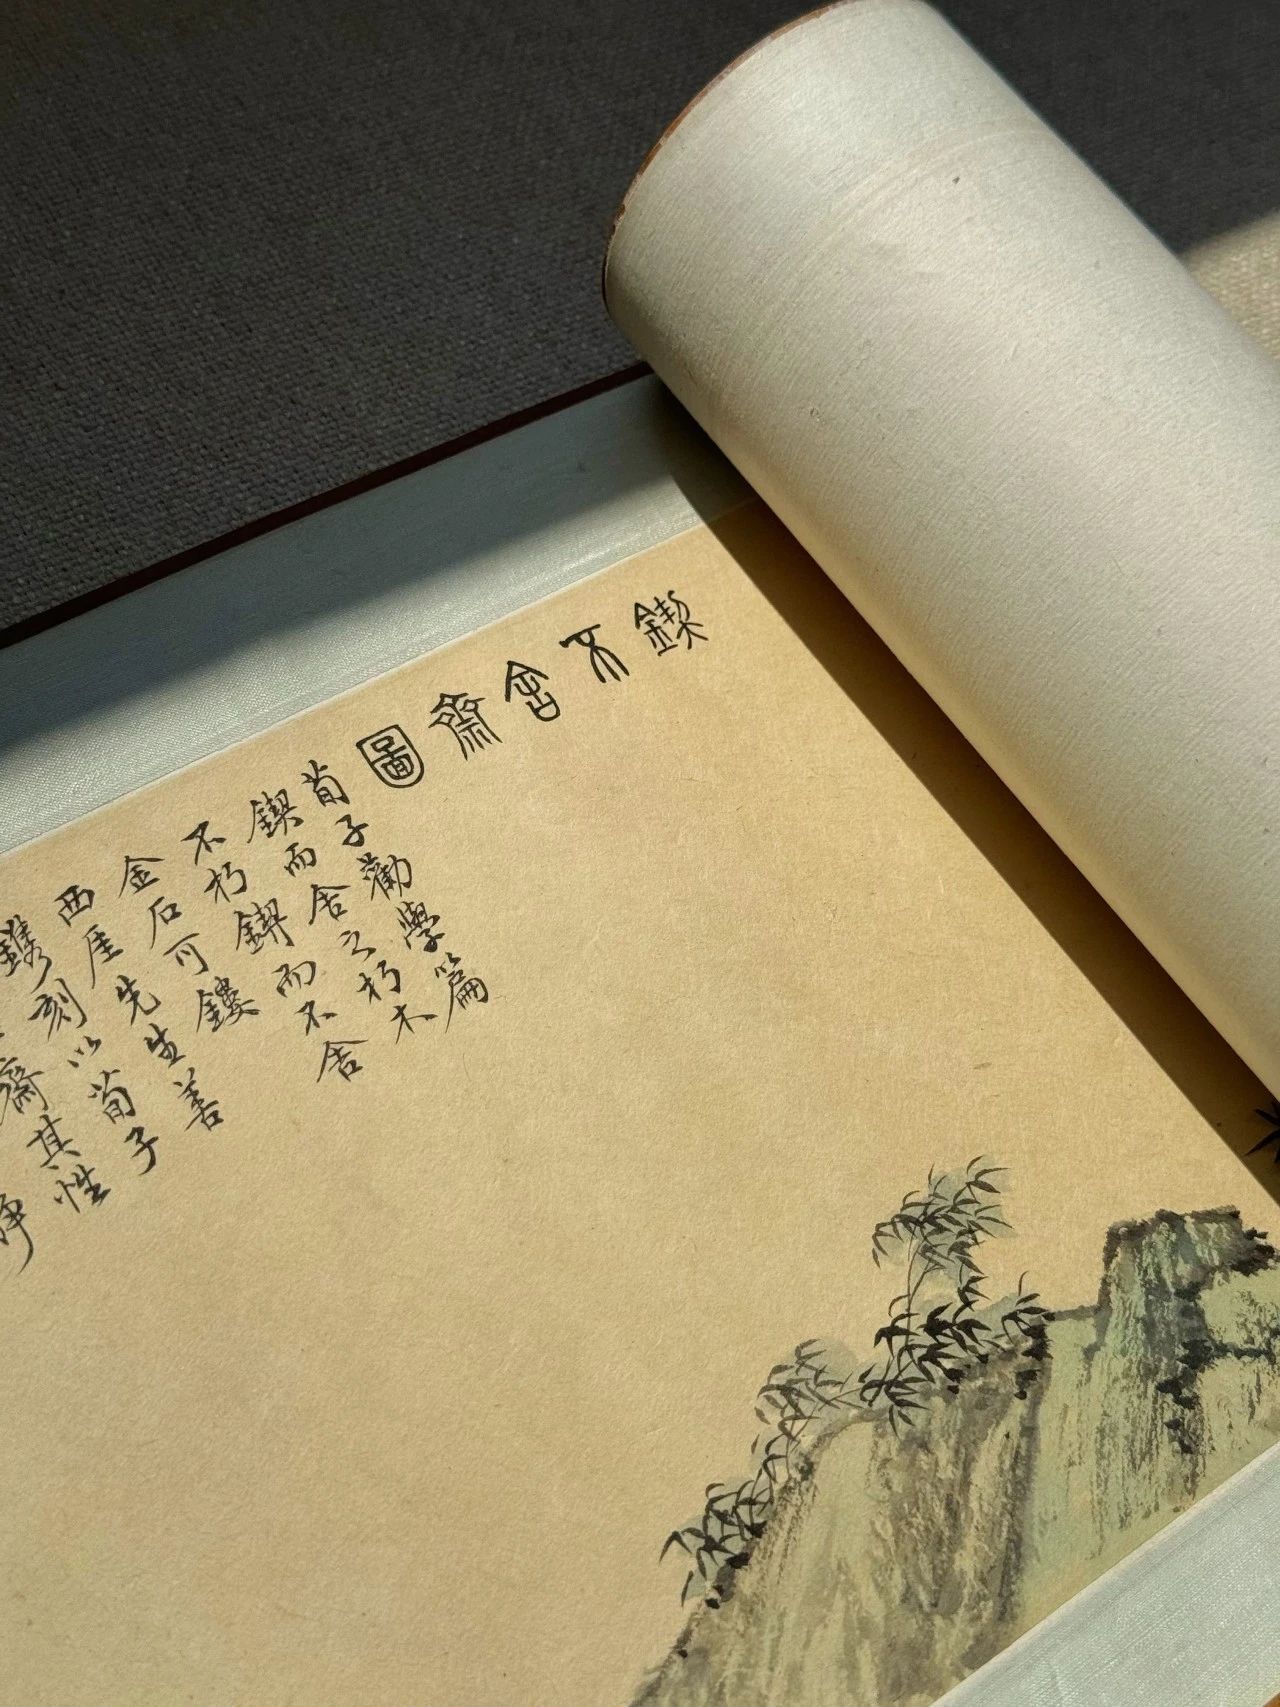 鍥不舍齋圖
荀子勸學篇
鍥而舍之朽木
不朽鍥而不舍
金石可鏤
西厓先生善
鐫刻以荀子
齋其性